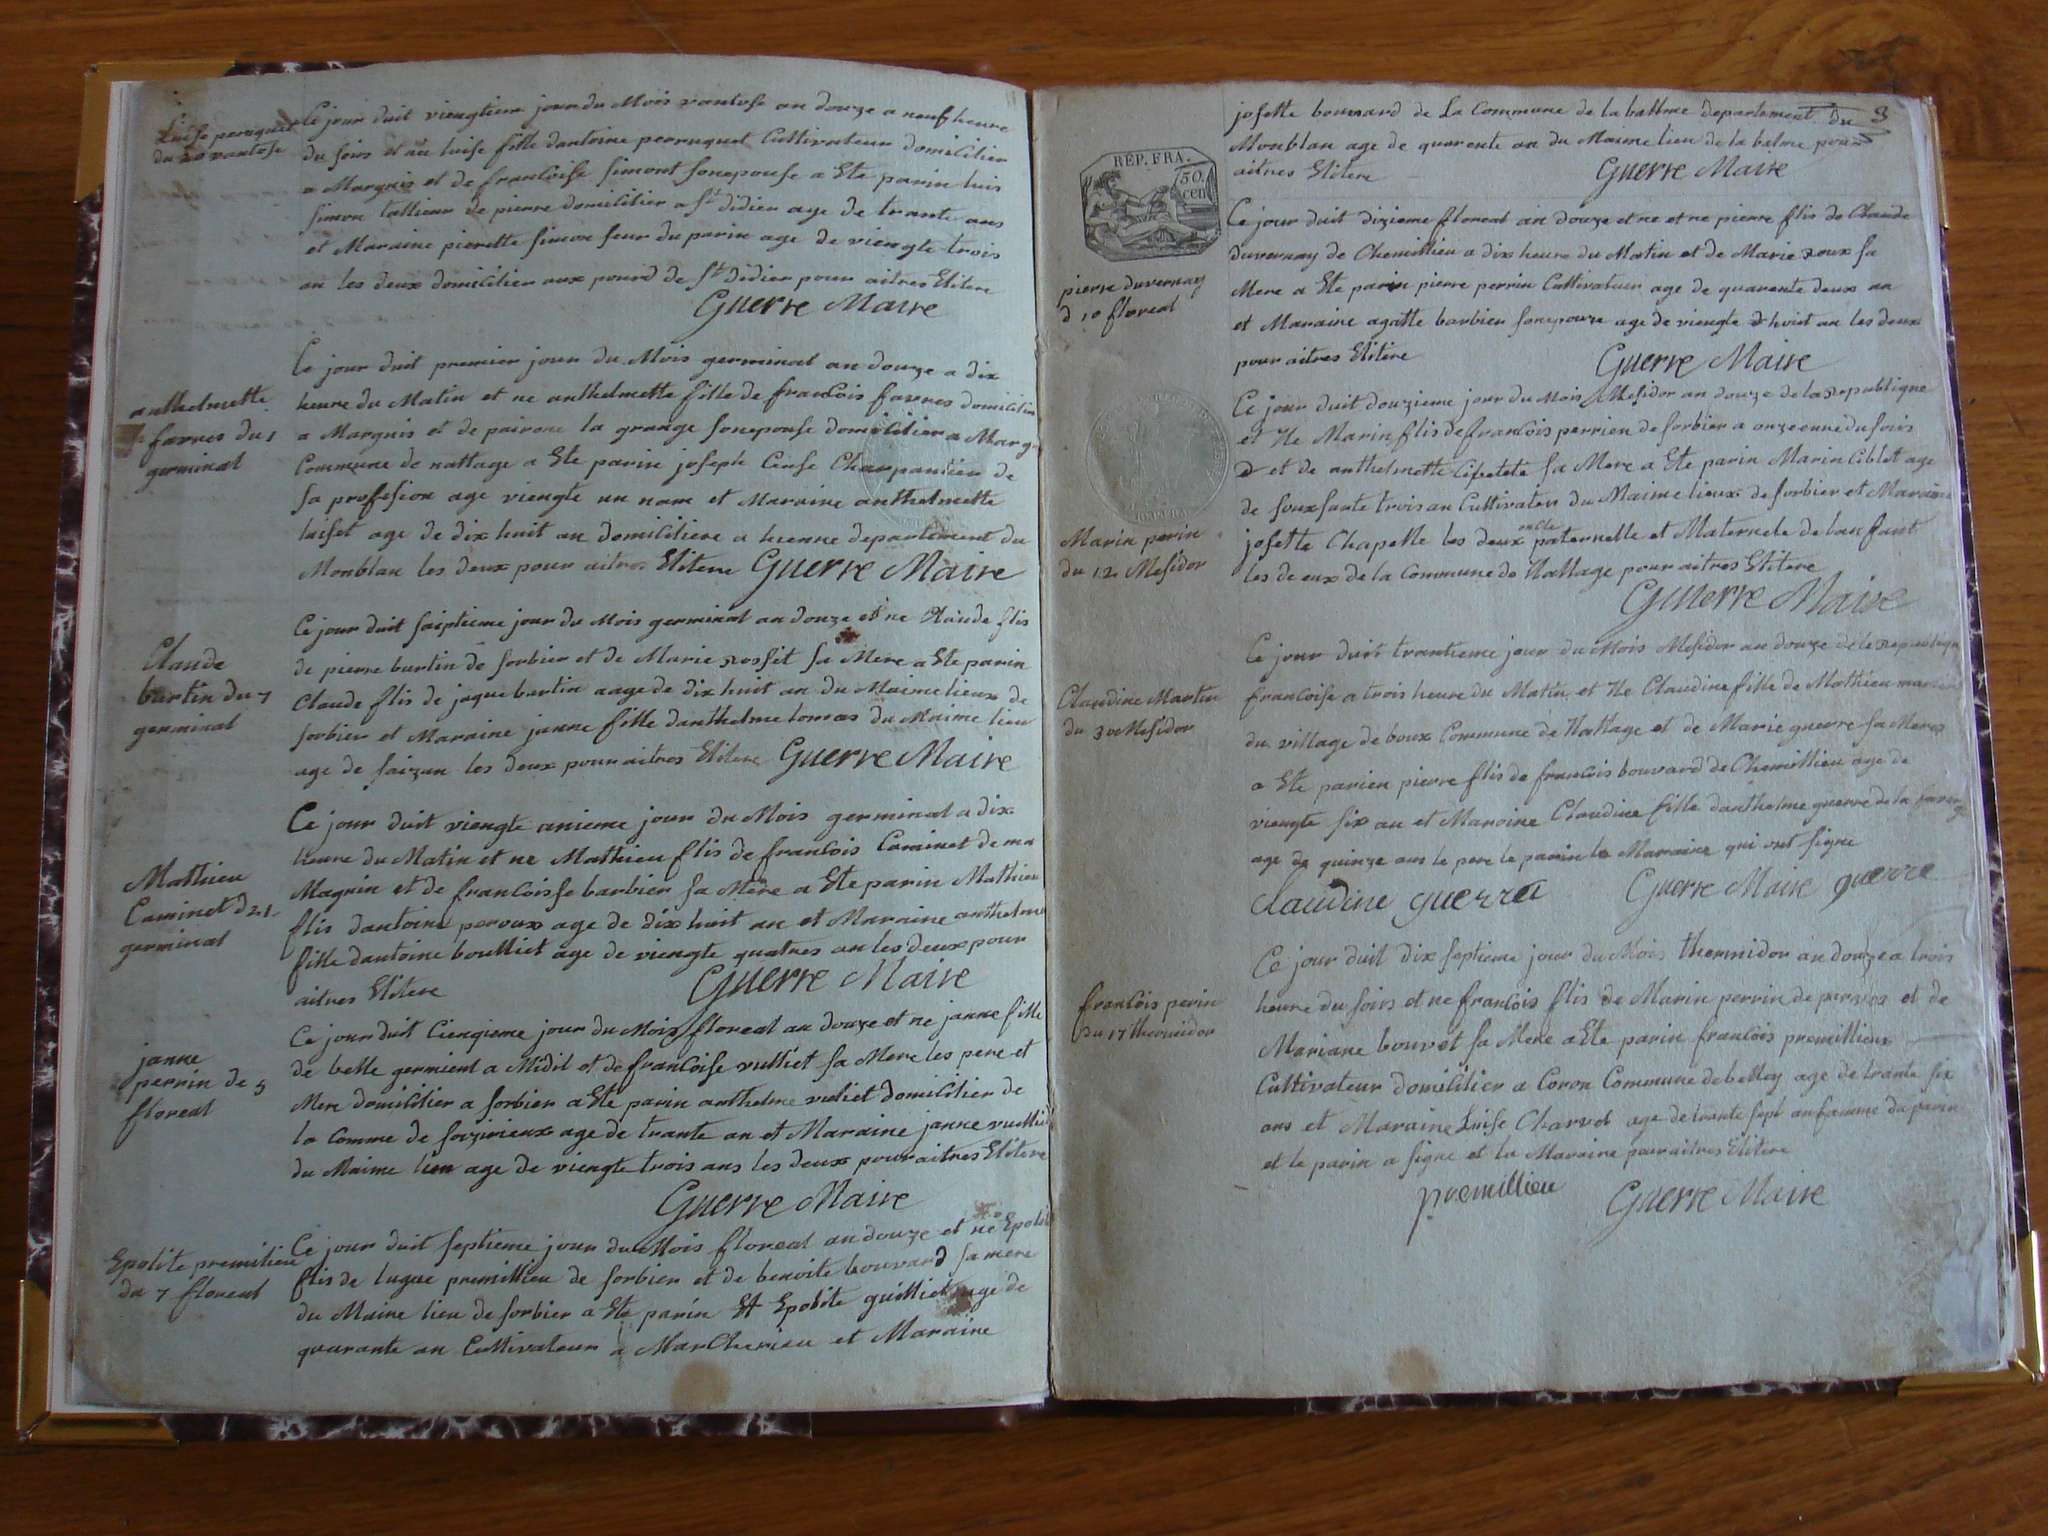 Luise peruquet
du 20 vantose
Ce jour duit viengtiem jour du Mois vantose an douze a neuf heure
du soirs et né luise fille dantoine perruquet Cultivateur domicilier
a Margnis et de francoise simont son epouse a Ete parin luis
simon tallieur de pierre domicilier a St didier age de trante ans
et Maraine pierette simon seur du parin age de viengte trois
an les deux domicilier aux pourd de St didier pour aitres Elitere
Guerre Maire
anthelmette
favres du 1
germinal
Ce jour duit premier jour du Mois germinal an douze a dix
heure du Matin et ne anthelmette fille de francois favres domicilier
a Margnis et de la grange son epouse domicilier a Margnis
Commune de nattage a Ete parin joseph Charpantier de
sa profesion age viengte un nam et Maraine anthelmette
age de dix huit an domiciliere a lucenne departement du
Monblan les deux pour aitres Elitere Guerre Maire
Claude
burtin du 7
germinal
Ce jour duit saiptieme jour du Mois germinal an douze et ne Claude flis
de pierre burtin de sorbier et de Marie rosset sa Mere a Ete parin
Claude flis de jaque burtin aage de dix huit an du Maime lieux de
sorbier et Maraine janne fille danthelme lomas du Maime lieu
age de saizan les deux pour aitres Elitere Guerre Maire
Mathieu
Caminet d 21
germinal
Ce jour duit viengte unieme jour du Mois germinal a dix
heure du Matin et ne Mathieu flis de francois Caminet de ma
Magnin et de francoisse barbier sa Mere a Ete parin Mathieu
flis dantoine peroux age de dix huit an et Maraine anthelme
fille dantoine boulliet age de viengte quatres an les deux pour
aitres Elitere
Guerre Maire
janne
perrin de 5
floreal
Ce jour duit Cienqieme jour du Mois floreal an douze et ne janne fille
de belle germient a Midil et de francoise vulliet sa Mere les pere et
Mere domicilier a sorbier a Ete parin anthelme vuliet domicilier de
la Comme de age de trante an et Maraine janne vulliet
du Maime lieu age de viengte trois ans les deux pour aitres Elitere
Guerre Maire
Epolite premilieu
du 7 floreal
Ce jour duit septieme jour du Mois floreal an douze et né Epolite
flis de lugue premillieu de sorbier et de benoite bouvard sa mere
du Maime lieu de sorbier a Ete parin Et Epolite guilliet age de
quarante an Cultivateur a Marcherieu et Maraine
3
josette bouvard de La Commune de la baltme departement du
Monblan age de quarente an du Maime lieu de la balme pour
aitres Elitere
Guerre Maire
RÉP. FRA.
50.
cen
pierre duvernay
d 10 floreal
Ce jour duit dizieme floreal an douze et ne et ne pierre flis de Claude
duvernay de Chemillieu a dix heure du Matin et de Marie roux sa
Mere a Ete parin pierre perrin Cultivateur age de quarente deux an
et Maraine agatte barbier son epouze age de viengte d huict an les deux
pour aitres Elitere
Guerre Maire
Marin perin
du 12 Mesidor
Ce jour duit douzieme jour du Mois Mesidor an douze de la republique
et Ne Marin flis de francois perrien de sorbier a onze eure du soirs
et de anthelmette sa Mere a Ete parin Marin Ciblet age
de souxsante trois an Cultivateur du Maime lieux de sorbier et Maraine
josette Chapelle les deux oncle paternelle et Maternele de lanfant
les deux de la Commune de Nattage pour aitres Elitere
Guerre Maire
Claudine Martin
du 30 Mesidor
Ce jour duit trantieme jour du Mois Mesidor an douze de la republique
francoise a trois heure du Matin et Ne Claudine fille de Mathieu martin
du village de boux Commune de Nattage et de Marie guerre sa Mere
a Ete parien pierre flis de francois bouvard de Chemillieu age de
viengte six an et Maraine Claudine fille danthelme guerre de la
age de quinze ans le pere le parin la Maraine qui ont signe
Claudine guerre Guerre Maire guerre
francois perin
du 17 thermidor
Ce jour duit dix septieme jour du Mois thermidor an douze a trois
heure du soirs et ne francois flis de Marin perrin de et de
Mariane bouvet sa Mere a Ete parin francois premillieux
Cultivateur domicilier a Coron Commune de belley age de trante six
ans et Maraine Luise Charvet age de trante sept an famme du parin
et le parin a signe et la Maraine pour aitres Elitere
premillieu Guerre Maire